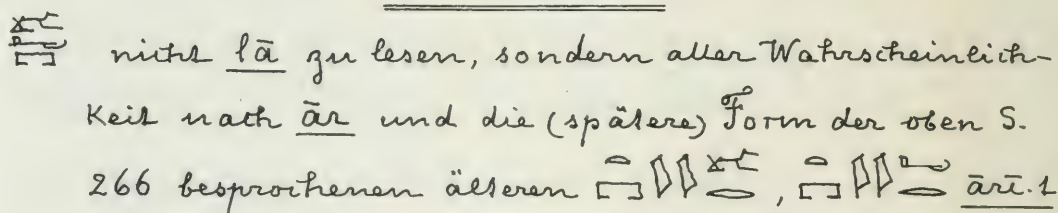 nicht lā zu lesen, sondern aller Wahrscheinlich-
keit nach ār und die (spätere) Form der oben S.
266 besprochenen älteren , ārī.t